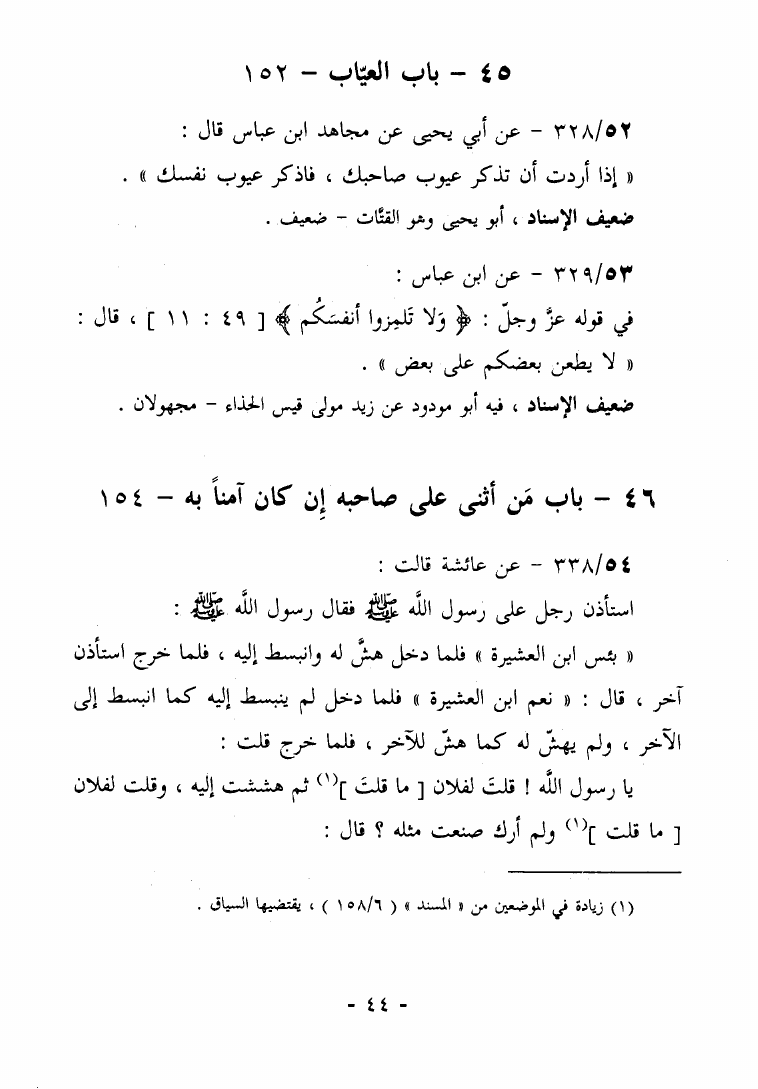 ٤٥ – باب العيّاب – ١٥٢
٣٢٨/٥٢ – عن أبي يحيى عن مجاهد ابن عباس قال :
« إذا أردت أن تذكر عيوب صاحبك ، فاذكر عيوب نفسك » .
ضعيف الإسناد ، أبو يحيى وهو القتَّات – ضعيف .
٣٢٩/٥٣ – عن ابن عباس :
في قوله عزَّ وجلّ : ﴿ وَلا تَلمِزوا أنفسَكُم ﴾ [ ٤٩ : ١١ ] ، قال :
« لا يطعن بعضكم على بعض » .
ضعيف الإسناد ، فيه أبو مودود عن زيد مولى قيس الحذاء – مجهولان .
٤٦ – باب مَن أثنى على صاحبه إِن كان آمناً به – ١٥٤
٣٣٨/٥٤ – عن عائشة قالت :
استأذن رجل على رسول اللَّه ﷺ فقال رسول اللَّه ﷺ :
« بئس ابن العشيرة » فلما دخل هشَّ له وانبسط إليه ، فلما خرج استأذن
آخر ، قال : « نعم ابن العشيرة » فلما دخل لم ينبسط إليه كما انبسط إلى
الآخر ، ولم يهشّ له كما هشّ للآخر ، فلما خرج قلت :
يا رسول اللَّه ! قلتَ لفلان [ ما قلتَ ](١) ثم هششت إليه ، وقلت لفلان
[ ما قلت ](١) ولم أرك صنعت مثله ؟ قال :
(١) زيادة في الموضعين من « المسند » ( ١٥٨/٦ ) ، يقتضيها السياق .
- ٤٤ -